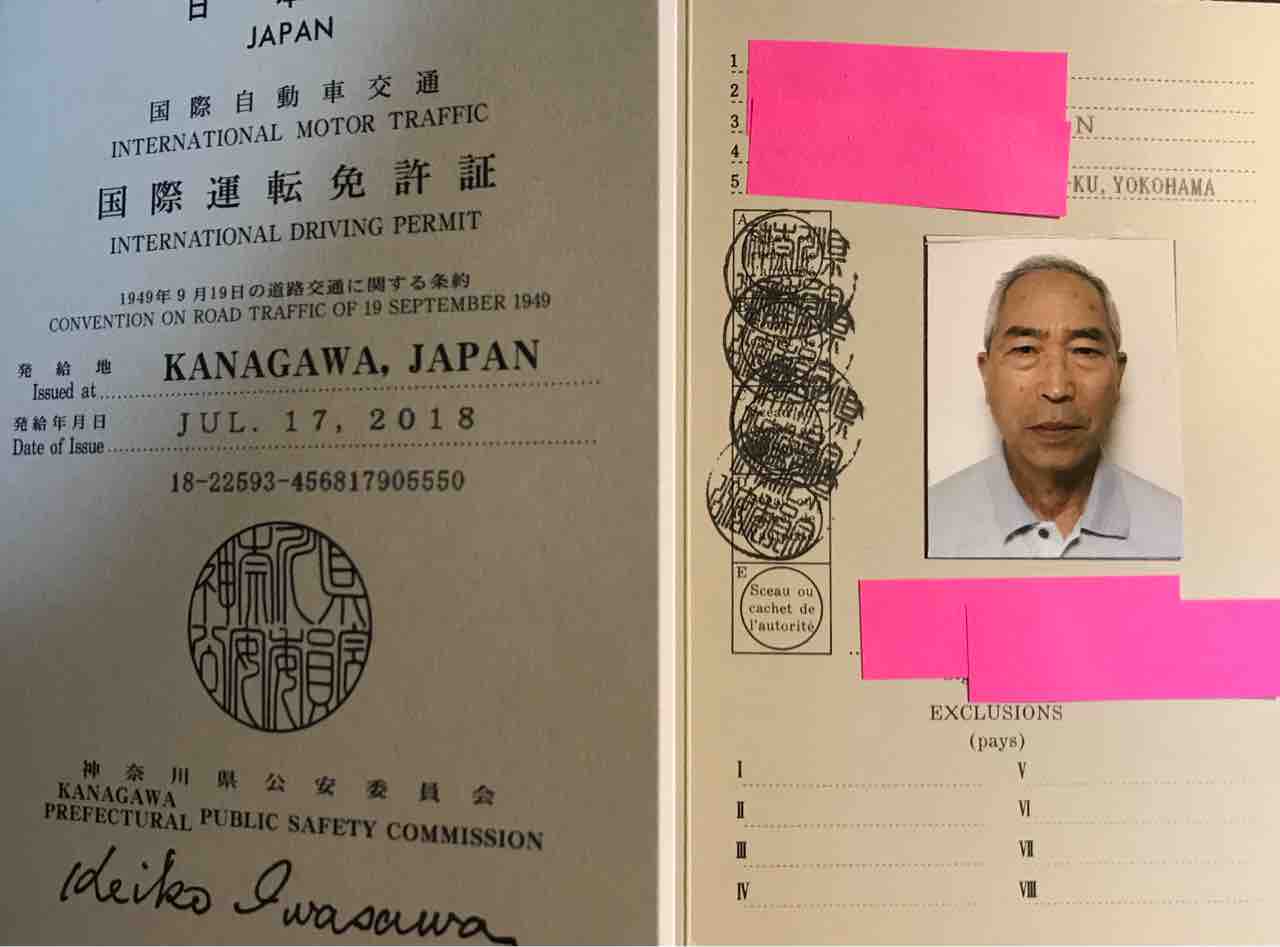 日 本
JAPAN
国際自動車交通
INTERNATIONAL MOTOR TRAFFIC
国際運転免許証
INTERNATIONAL DRIVING PERMIT
1949年9月19日の道路交通に関する条約
CONVENTION ON ROAD TRAFFIC OF 19 SEPTEMBER 1949
発給地
Issued at
KANAGAWA, JAPAN
発給年月日
Date of Issue
JUL. 17, 2018
18-22593-456817905550
神奈川県公安委員会
神奈川県公安委員会
KANAGAWA
PREFECTURAL PUBLIC SAFETY COMMISSION
Keiko Iwasawa
1
2
3 N
4
5 -KU, YOKOHAMA
A
神奈川県
E
Sceau ou
cachet de
l'autorité
EXCLUSIONS
(pays)
I V
II VI
III VII
IV VIII